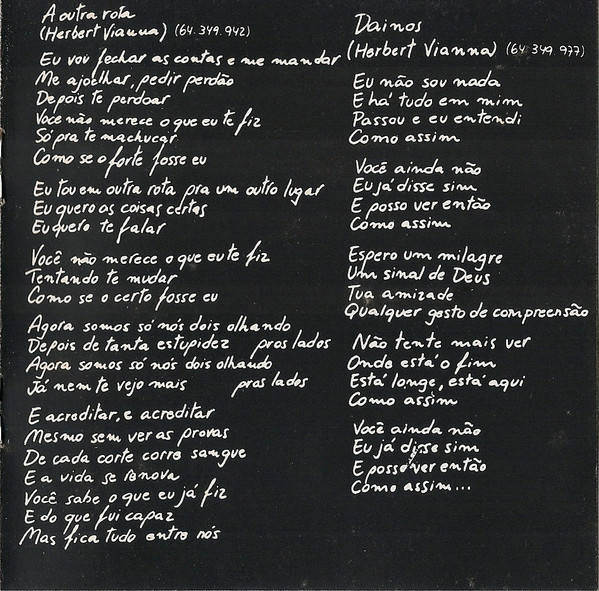 A outra rota
(Herbert Vianna) (64.349.942)
Eu vou fechar as contas e me mandar
Me ajoelhar, pedir perdão
Depois te perdoar
Você não merece o que eu te fiz
Só pra te machucar
Como se o forte fosse eu
Eu tou em outra rota pra um outro lugar
Eu quero as coisas certas
Eu quero te falar
Você não merece o que eu te fiz
Tentando te mudar
Como se o certo fosse eu
Agora somos só nós dois olhando
Depois de tanta estupidez pros lados
Agora somos só nós dois olhando
Já nem te vejo mais pros lados
E acreditar, e acreditar
Mesmo sem ver as provas
De cada corte corre sangue
E a vida se renova
Você sabe o que eu já fiz
E do que fui capaz
Mas fica tudo entre nós
Dainos
(Herbert Vianna) (64.349.977)
Eu não sou nada
E há tudo em mim
Passou e eu entendi
Como assim
Você ainda não
Eu já disse sim
E posso ver então
Como assim
Espero um milagre
Um sinal de Deus
Tua amizade
Qualquer gesto de compreensão
Não tente mais ver
Onde está o fim
Está longe, está aqui
Como assim
Você ainda não
Eu já disse sim
E posso ver então
Como assim...